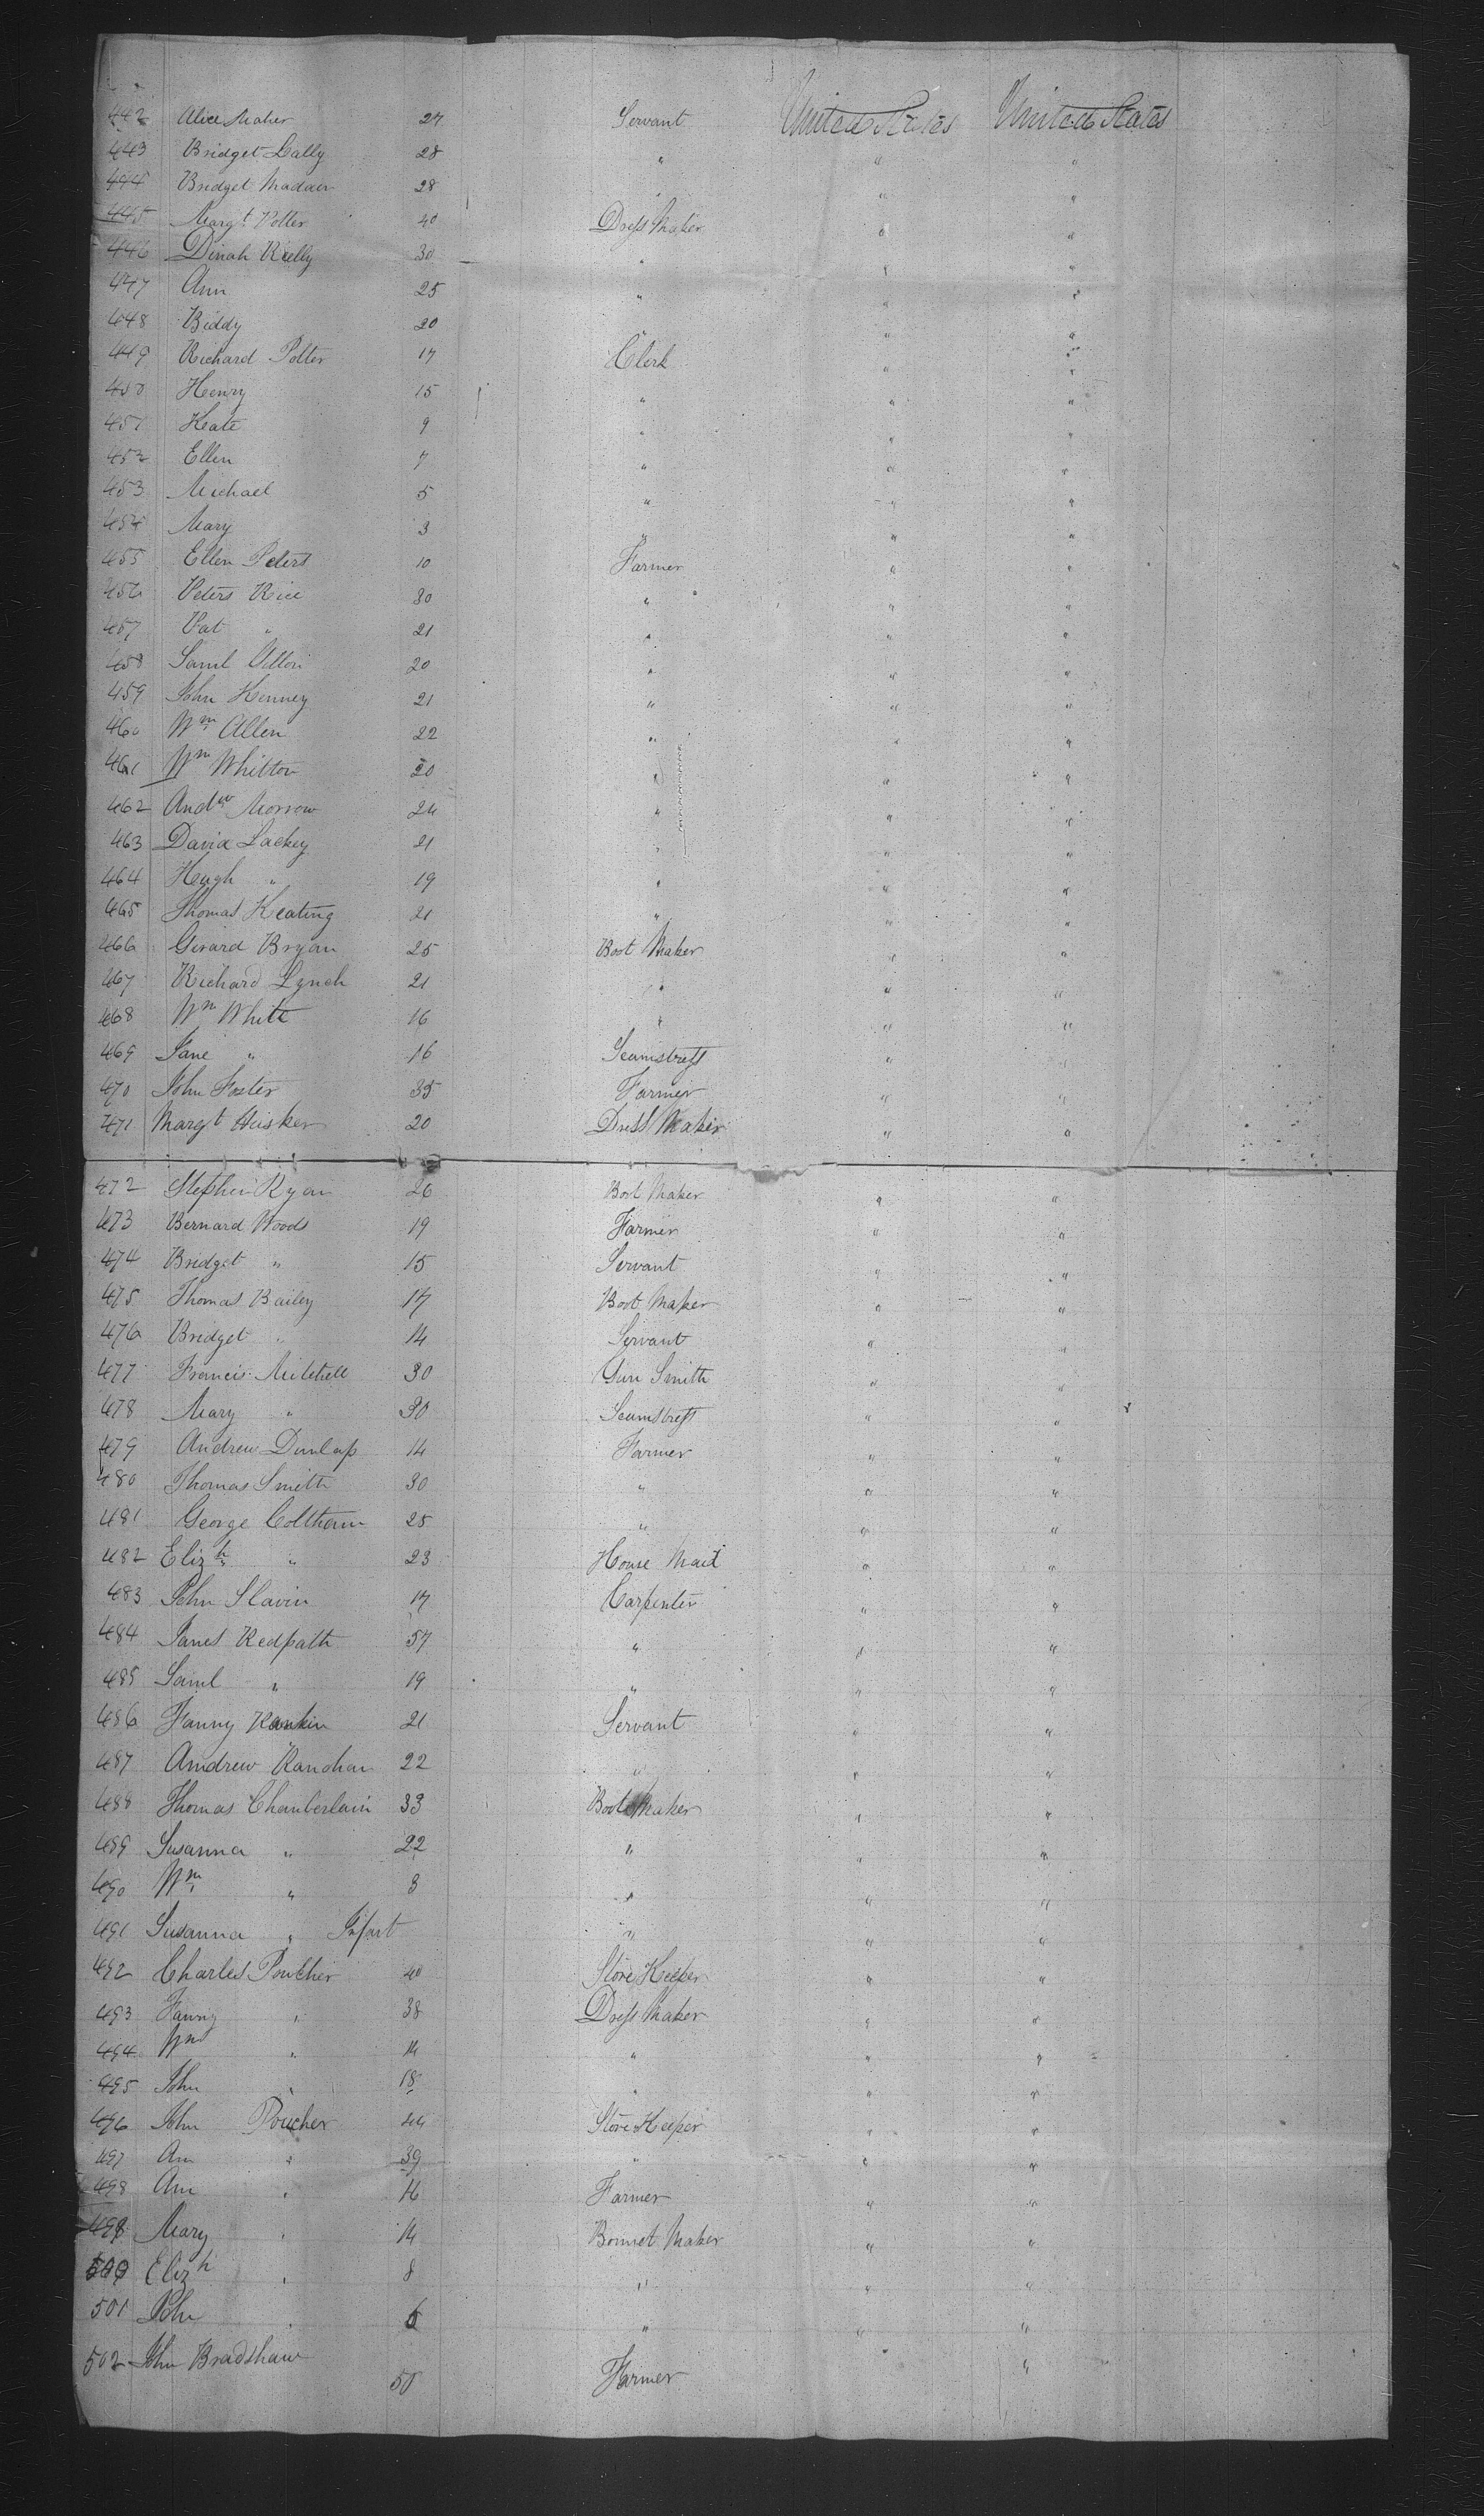 442 Alice Maher 24 Servant United States United States
443 Bridget Lally 28 " " "
444 Bridget Madden 28 " " "
445 Margt Potter 40 Dress Maker " "
446 Dinah Kielly 30 " " "
447 Ann 25 " " "
448 Biddy 20 " " "
449 Richard Potter 17 Clerk " "
450 Henry 15 " " "
451 Keate 9 " " "
452 Ellen 7 " " "
453 Michael 5 " " "
454 Mary 3 " " "
455 Ellen Peters 10 Farmer " "
456 Peters Rice 30 " " "
457 Pat " 21 " " "
458 Saml 20 " " "
459 John Kenney 21 " " "
460 Wm Allen 22 " " "
461 Wm Whitton 20 " " "
462 Andw Morrow 24 " " "
463 David Lackey 21 " " "
464 Hugh " 19 " " "
465 Thomas Keating 21 " " "
466 Gerard Bryan 25 Boot Maker " "
467 Richard Lynch 21 " " "
468 Wm White 16 " " "
469 Jane " 16 Seamstress " "
470 John Foster 35 Farmer " "
471 Margt Husker 20 Dress Maker " "
472 Stephen Ryan 26 Boot Maker " "
473 Bernard Woods 19 Farmer " "
474 Bridget " 15 Servant " "
475 Thomas Bailey 17 Boot Maker " "
476 Bridget " 14 Servant " "
477 Francis Mitchell 30 Gun Smith " "
478 Mary " 30 Seamstress " "
479 Andrew Dunlap 14 Farmer " "
480 Thomas Smith 30 " " "
481 George Colthern 25 " " "
482 Elizh " 23 House Maid " "
483 John Slavin 17 Carpenter " "
484 James Redpath 57 " " "
485 Saml " 19 " " "
486 Fanny Rankin 21 Servant " "
487 Andrew Kanohan 22 " " "
488 Thomas Chamberlain 33 Boot Maker " "
489 Susanna " 22 " " "
490 Wm " 3 " " "
491 Susanna " Infant " " "
492 Charles Poucher 40 Store Keeper " "
493 Fanny " 38 Dress Maker " "
494 Wm " 14 " " "
495 John " 18 " " "
496 John Poucher 44 Store Keeper " "
497 Ann " 39 " " "
498 Ann " 16 Farmer " "
499 Mary " 14 Bonnet Maker " "
500 Elizh " 8 " " "
501 John " 6 " " "
502 John Bradshaw 50 Farmer " "